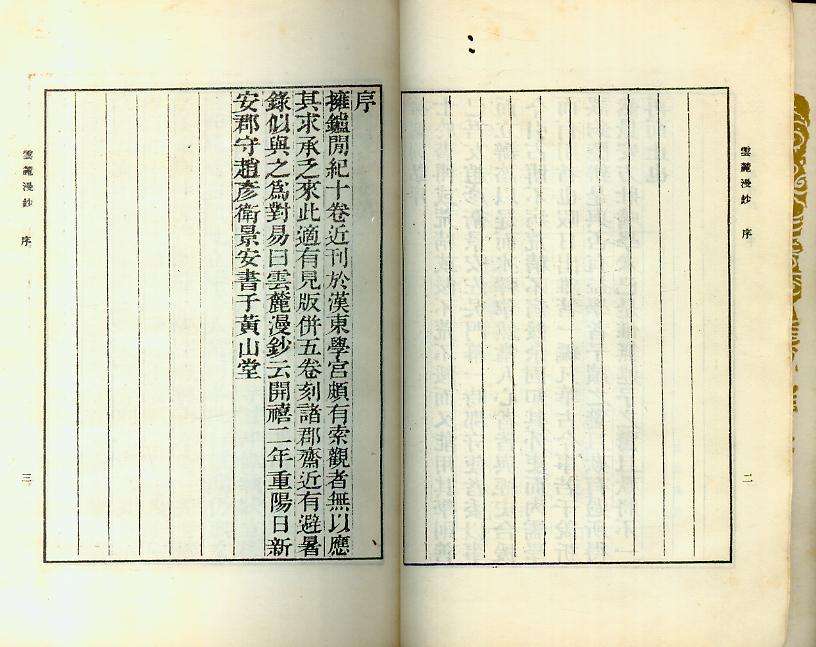 雲麓漫鈔 序
二
序
擁鑪閒紀十卷近刊於漢東學宮頗有索觀者無以應
其求承乏來此適有見版併五卷刻諸郡齋近有避暑
錄似與之爲對易曰雲麓漫鈔云開禧二年重陽日新
安郡守趙彥衛景安書于黃山堂
雲麓漫鈔 序
三